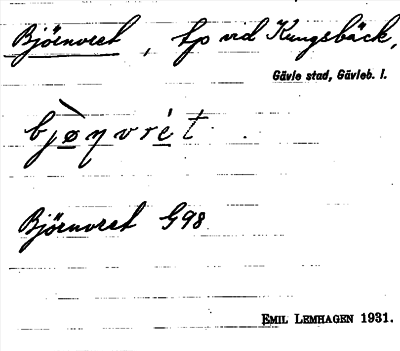 Björnvret, tp vid Kungsbäck,
Gävle stad, Gävleb. l.
bjò̱ŋvré̱t.
Björnvret G98
EMIL LEMHAGEN 1931.